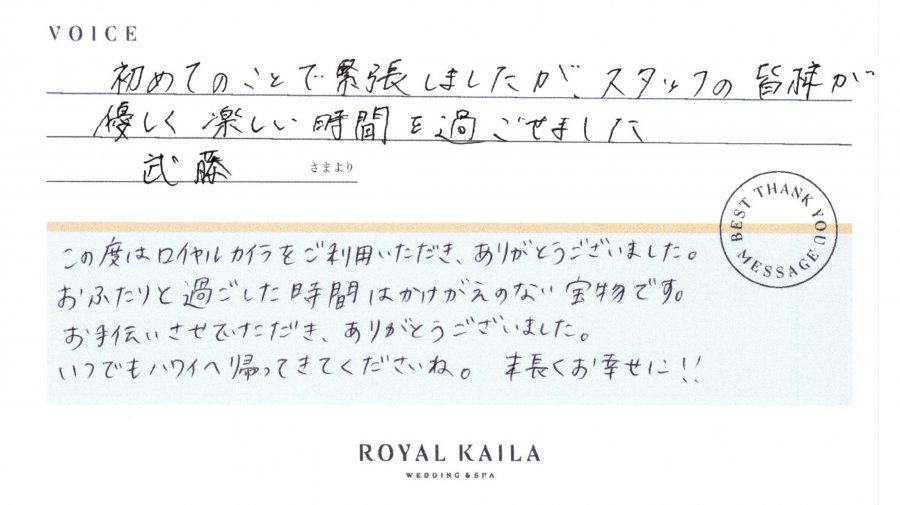 VOICE
初めてのことで緊張しましたが、スタッフの皆様が
優しく楽しい時間を過ごせました
武藤 さまより
BEST THANK YOU MESSAGE
この度はロイヤルカイラをご利用いただき、ありがとうございました。
おふたりと過ごした時間はかけがえのない宝物です。
お手伝いさせていただき、ありがとうございました。
いつでもハワイへ帰ってきてくださいね。 末長くお幸せに!!
ROYAL KAILA
WEDDING & SPA